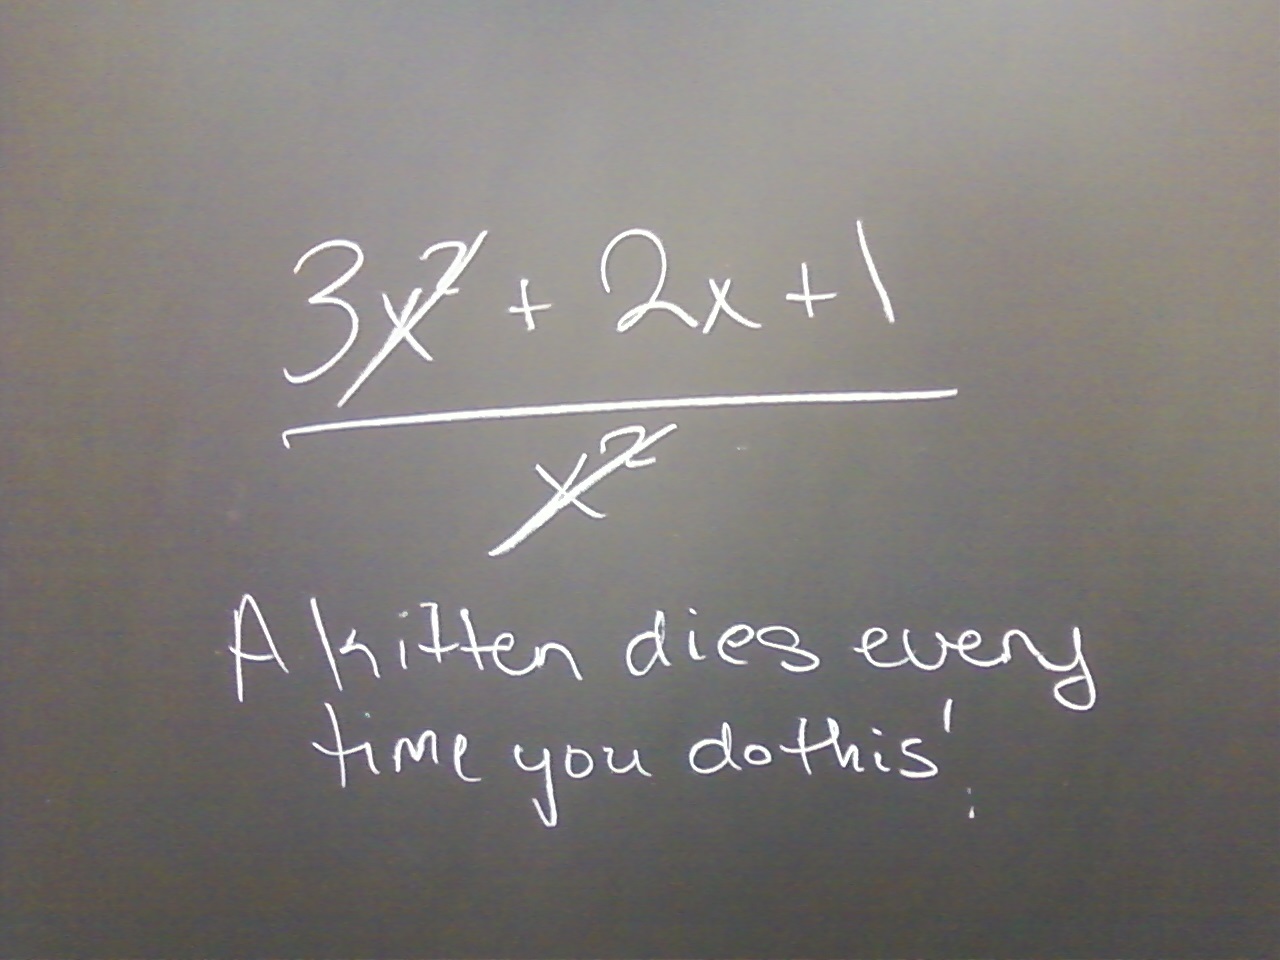 3x² + 2x + 1
x²
A kitten dies every
time you do this!